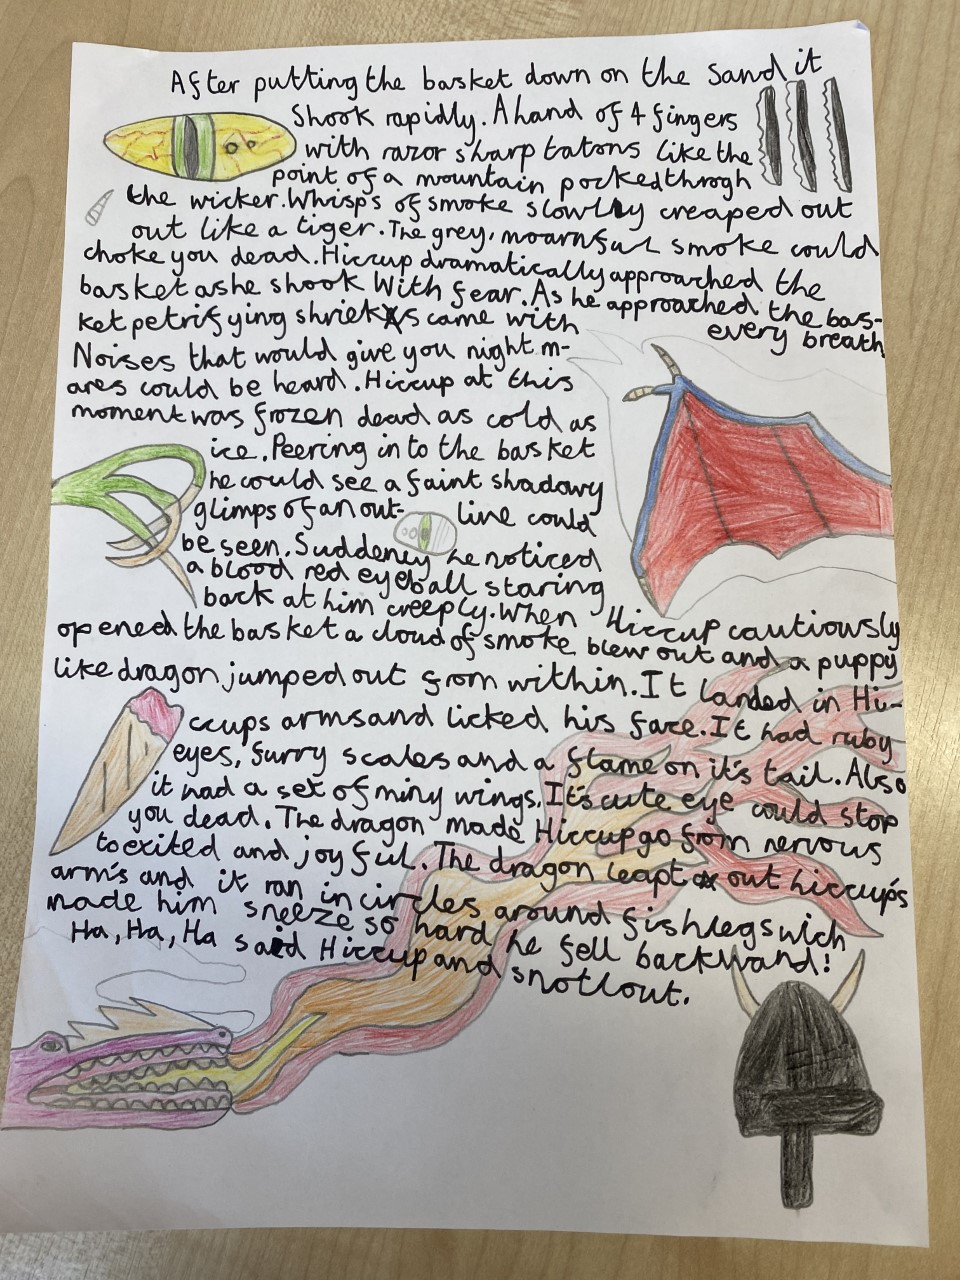 After putting the basket down on the sand it
shook rapidly. A hand of 4 fingers
with razor sharp tatons like the
point of a mountain pocked throgh
the wicker. Whisp's of smoke slowlly creaped out
out like a tiger. The grey, mournful smoke could
choke you dead. Hiccup dramatically approached the
basket as he shook With fear. As he approached the bas-
ket petrifying shrieks came with
every breath
Noises that would give you night m-
ares could be heard. Hiccup at this
moment was frozen dead as cold as
ice. Peering in to the basket
he could see a faint shadowy
glimps of an out- line could
be seen. Suddenly he noticed
a blood red eyeball staring
back at him creeply. When Hiccup cautiously
opened the basket a cloud of smoke blew out and a puppy
like dragon jumped out from within. It landed in Hi-
ccups arms and licked his face. It had ruby
eyes, furry scales and a flame on it's tail. Also
it had a set of miny wings. It's cute eye could stop
you dead. The dragon made Hiccup go from nervous
to exited and joyful. The dragon leapt out hiccup's
arm's and it ran in circles around fishlegs wich
made him sneeze so hard he fell backward!
Ha, Ha, Ha said Hiccup and snotlout.